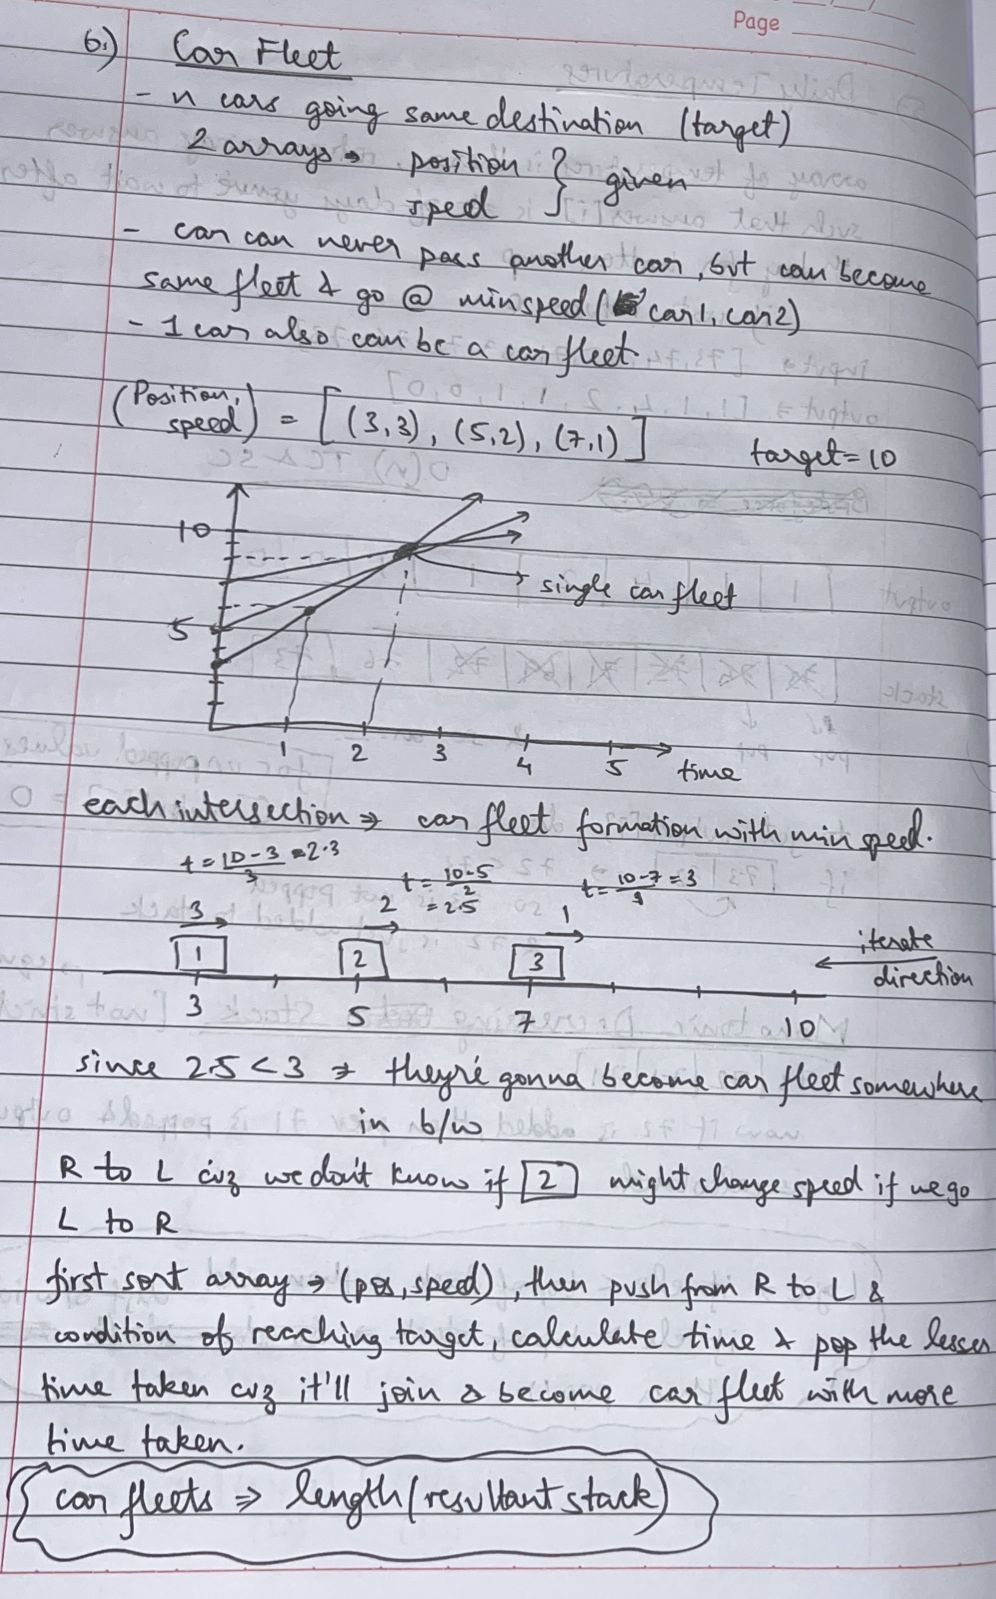 Page
6.) Car Fleet
- n cars going same destination (target)
2 arrays → position } given
speed
- car can never pass another car, but can become
same fleet & go @ minspeed ( car1, car2)
- 1 car also can be a car fleet.
(Position, speed) = [ (3,3), (5,2), (7,1) ] target = 10
10
single car fleet
5
1 2 3 4 5 time
each intersection ⇒ car fleet formation with min speed.
t = 10-3/3 = 2.3 t = 10-5/2 = 2.5 t = 10-7/1 = 3
3 2 1
1 2 3 iterate direction
3 5 7 10
since 2.5 < 3 ⇒ they're gonna become car fleet somewhere
in b/w
R to L cuz we don't know if 2 might change speed if we go
L to R
first sort array → (pos, speed), then push from R to L &
condition of reaching target, calculate time & pop the lesser
time taken cuz it'll join & become car fleet with more
time taken.
car fleets ⇒ length (resultant stack)